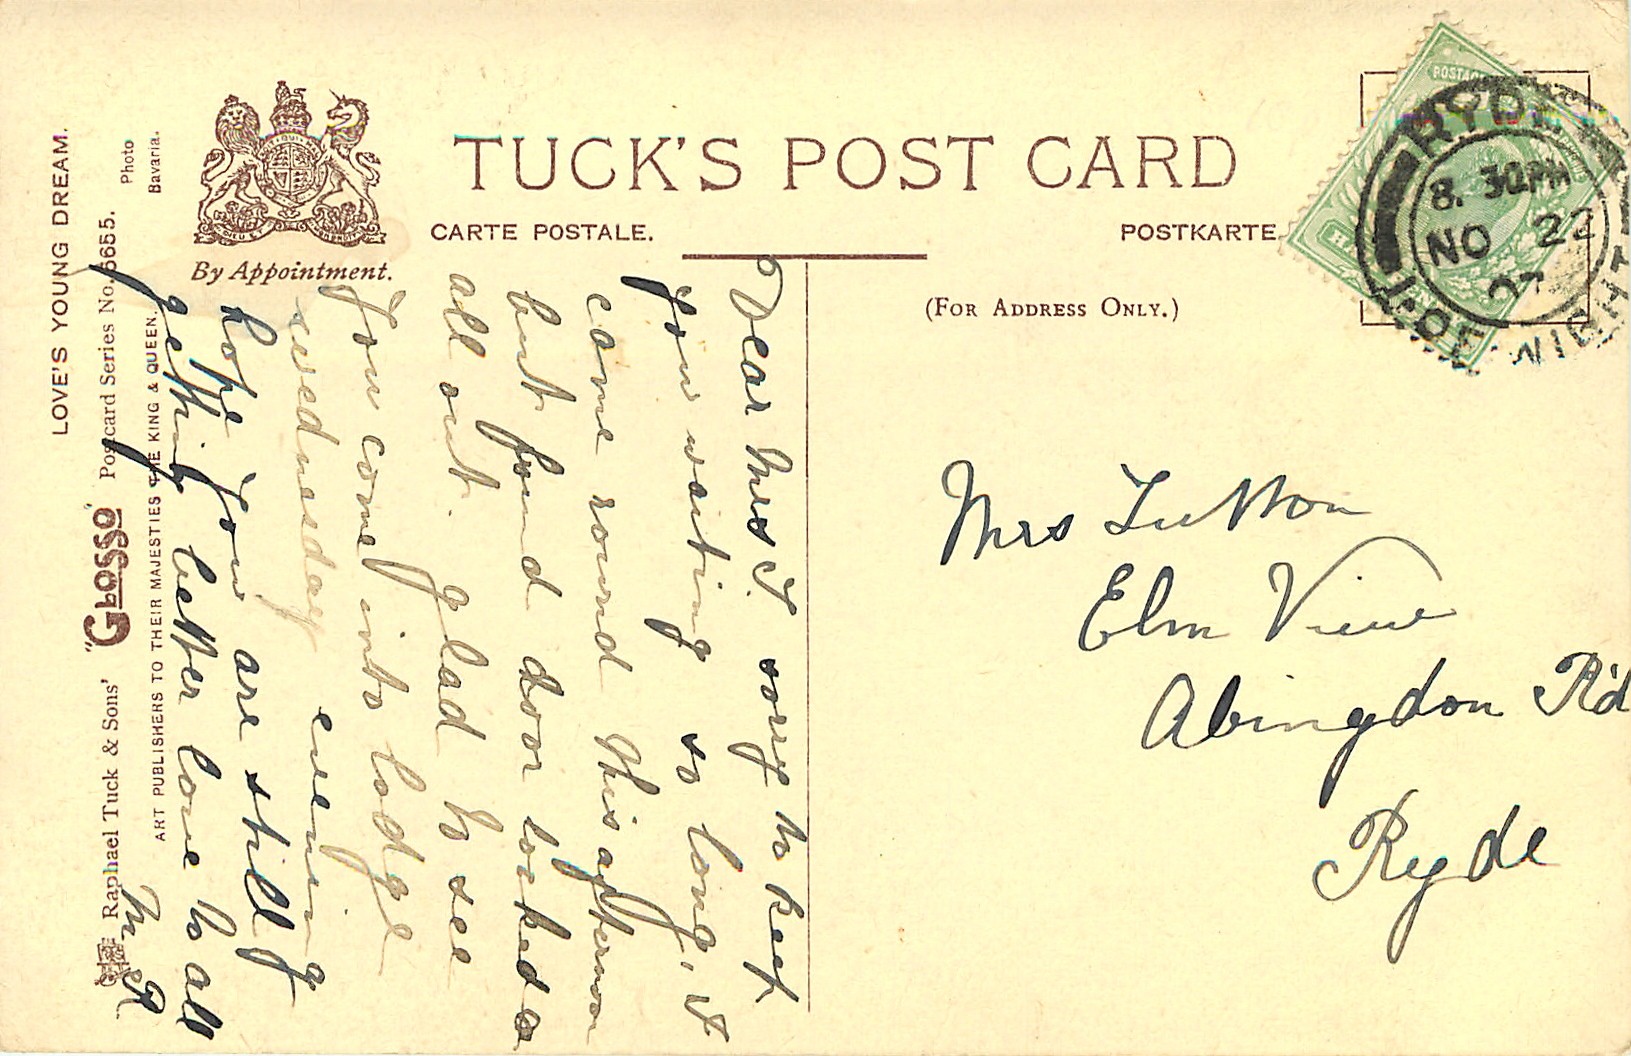 LOVE'S YOUNG DREAM.
Raphael Tuck & Sons' "GLOSSO" Postcard Series No. 6655.
ART PUBLISHERS TO THEIR MAJESTIES THE KING & QUEEN.
Photo
Bavaria.
By Appointment.
TUCK'S POST CARD
CARTE POSTALE.
POSTKARTE
(FOR ADDRESS ONLY.)
POSTAGE
RYDE
8. 30PM
NO 22
07
I. OF WIGHT
Dear Mrs T. sorry to keep
you waiting so long, I
come round this afternoon
but found door locked &
all out. glad to see
You come into lodge
wednesday evening
hope you are still g
getting better love to all
M R
Mrs Tutton
Elm View
Abingdon R'd
Ryde